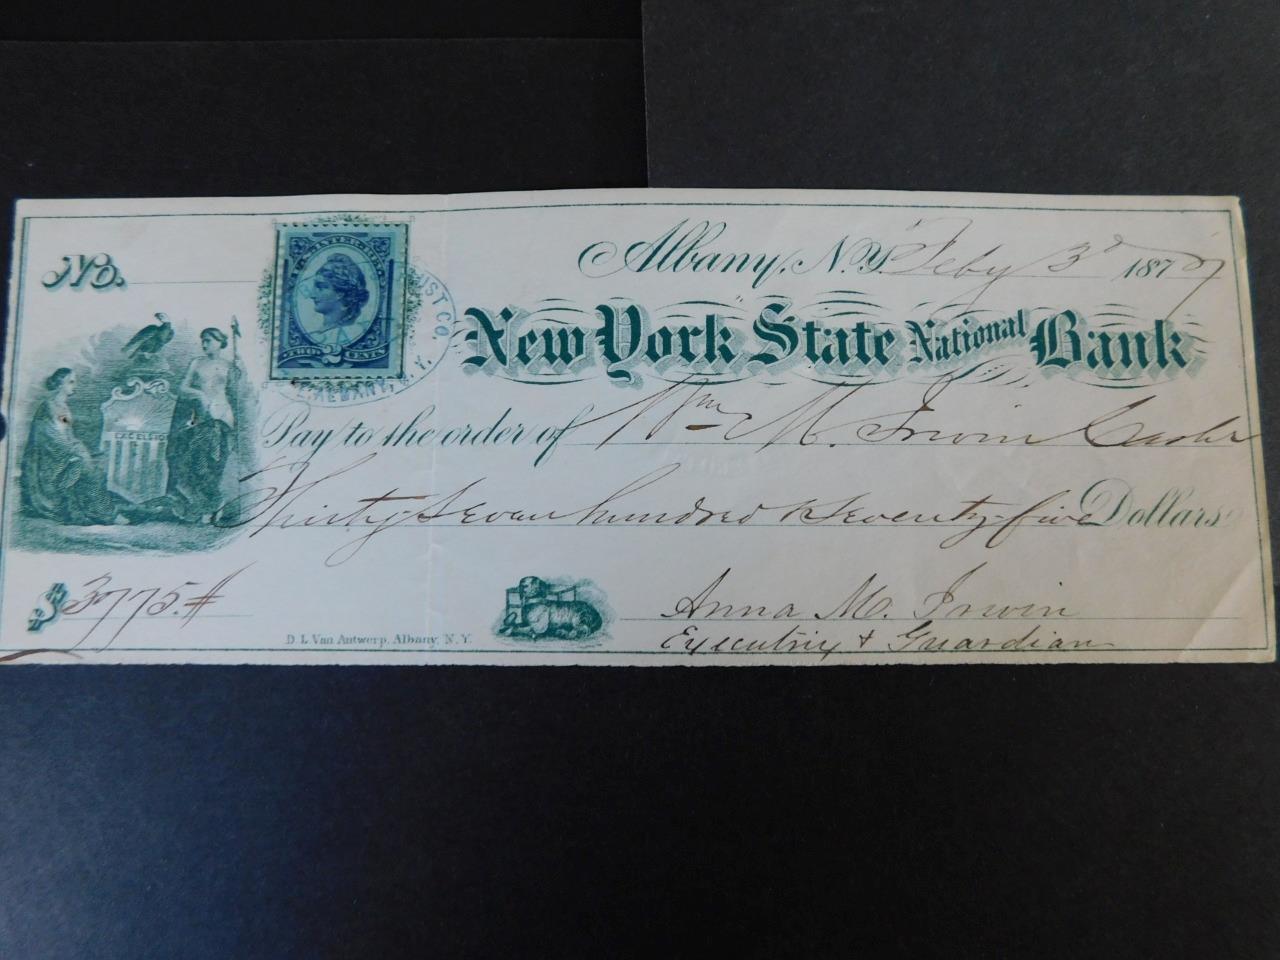 No.
Albany, N.Y. Feby 3d 1877
U.S. INTER. REV.
TWO 2 CENTS
UST CO.
ALBANY, N.Y.
New York State National Bank
EXCELSIOR
Pay to the order of Wm M. Irwin Cashr
Thirty Seven hundred & Seventy-five Dollars
$ 3775.#
D. L. Van Antwerp, Albany, N. Y.
Anna M. Irwin
Executrix & Guardian